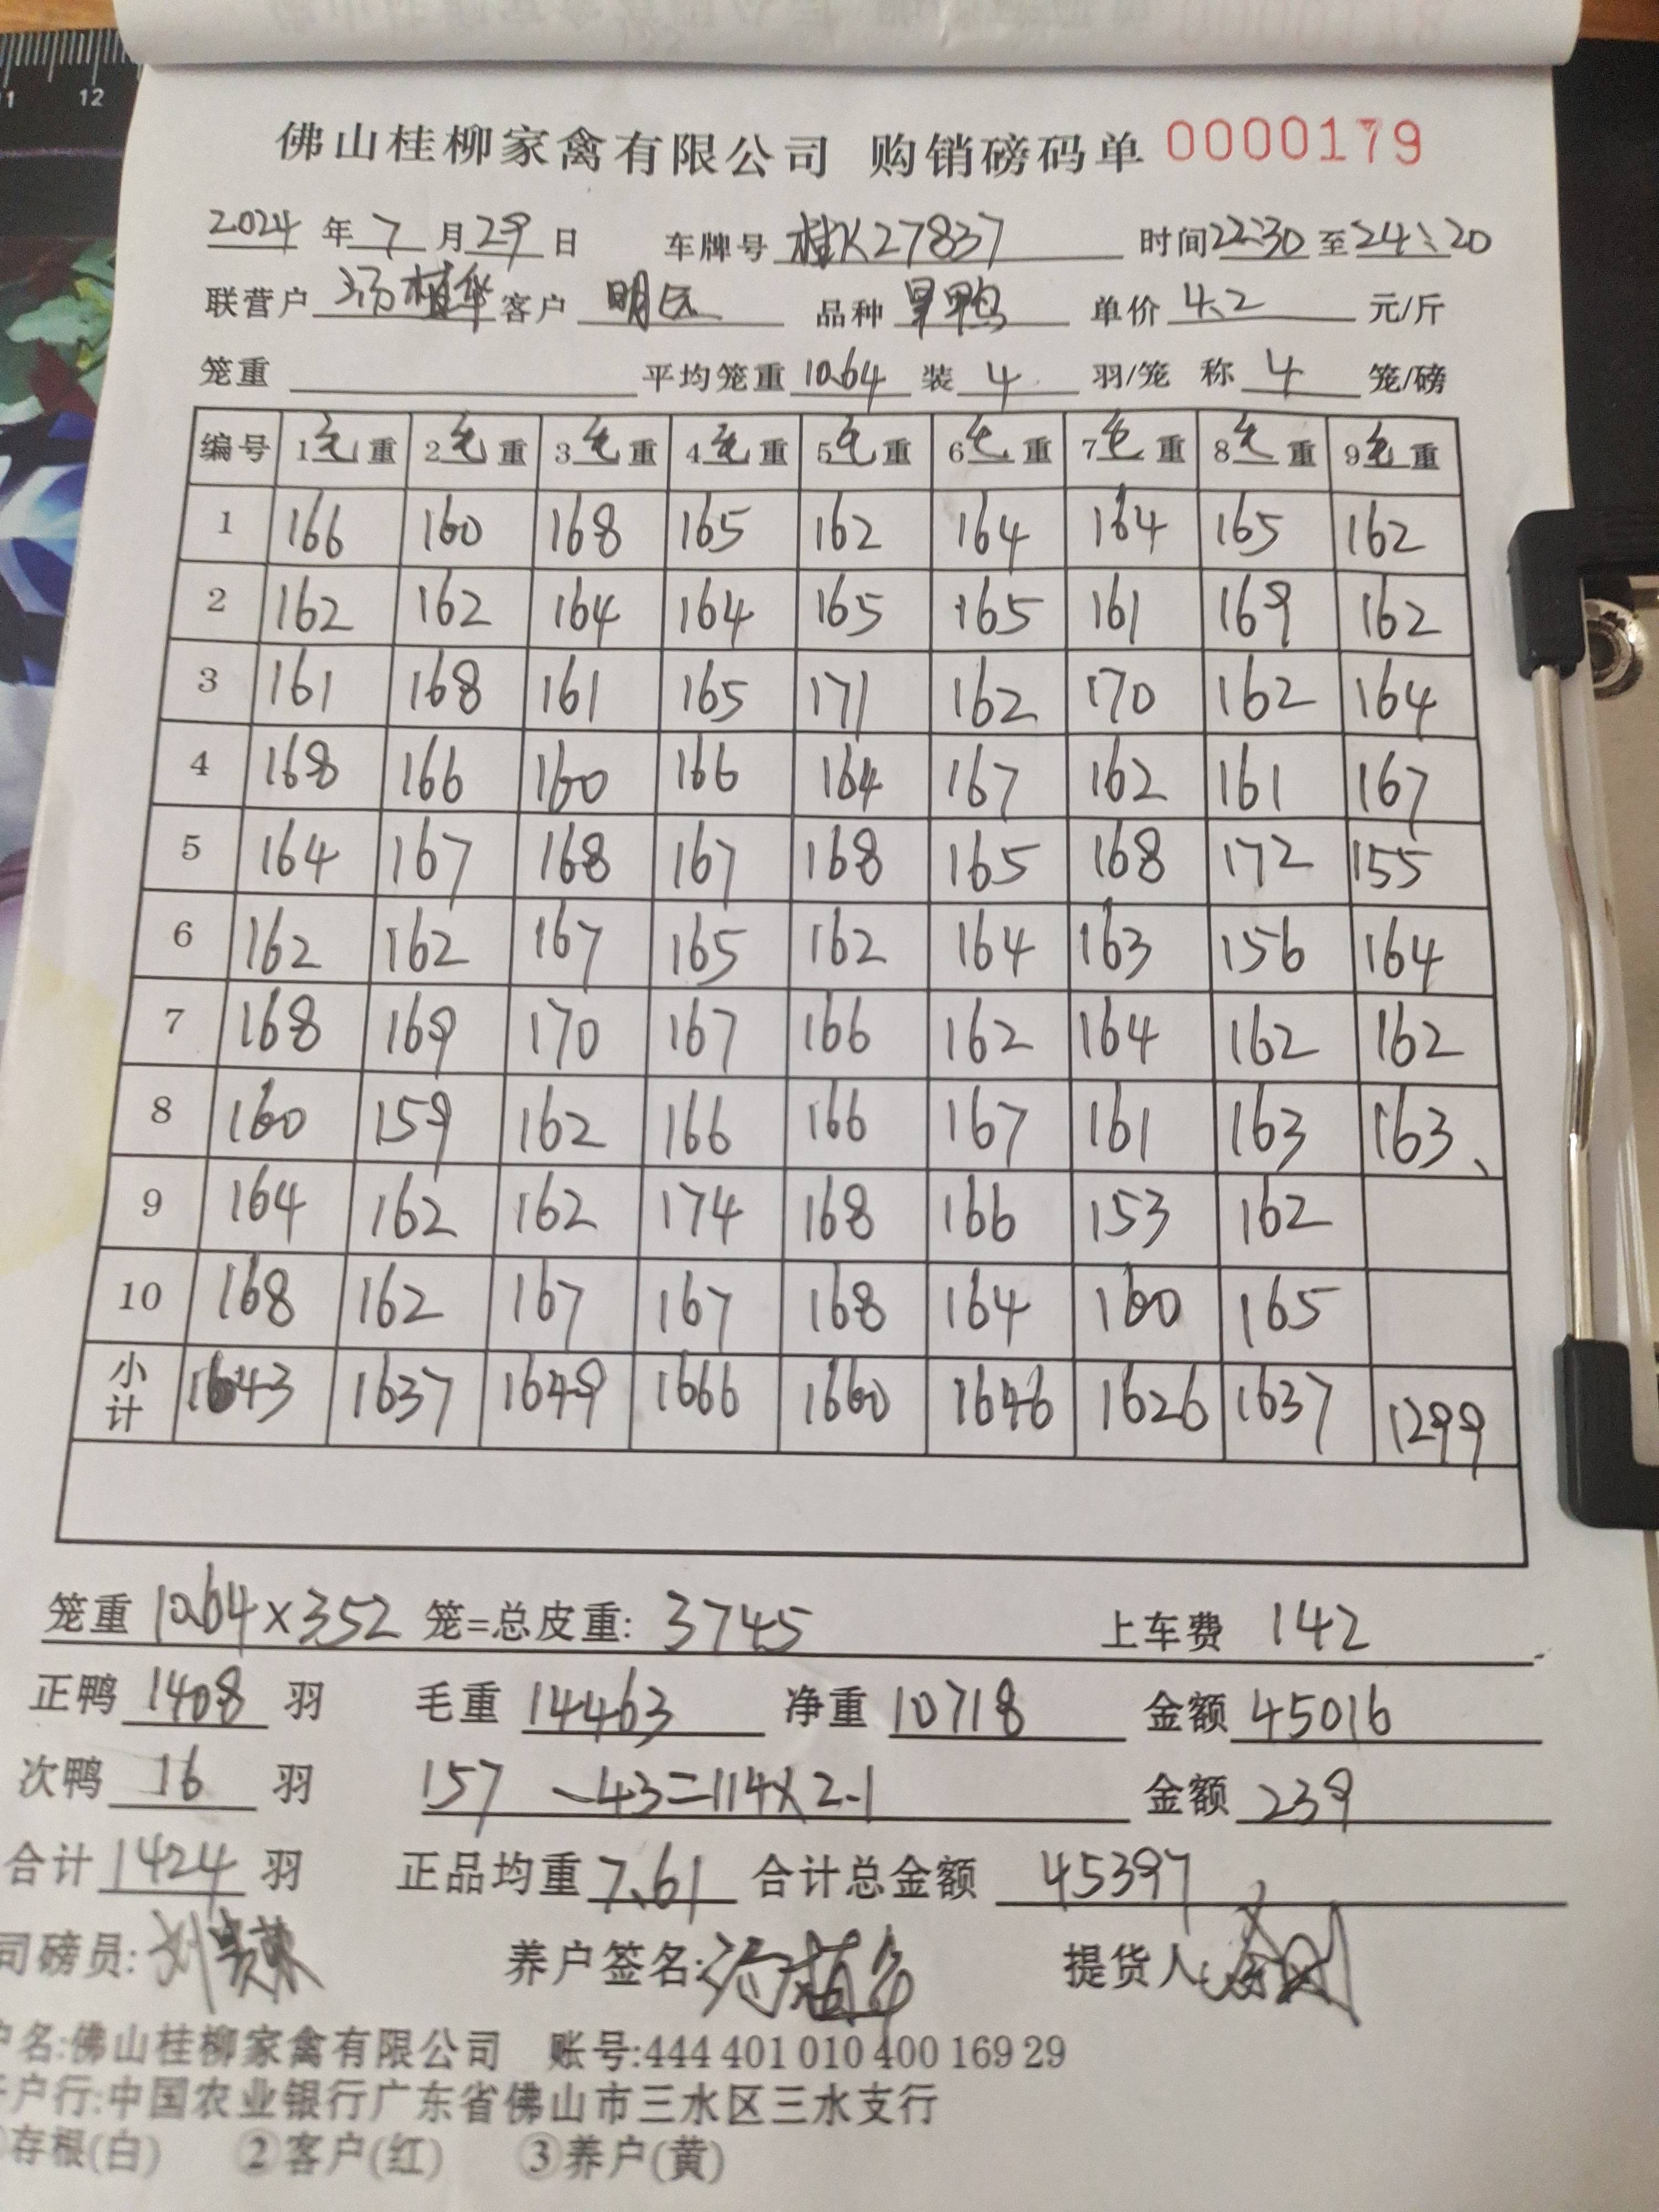 11 12
佛山桂柳家禽有限公司 购销磅码单 0000179
2024 年 7 月 29 日 车牌号 桂K27837 时间 22:30 至 24:20
联营户 汤植华 客户 明记 品种 旱鸭 单价 4.2 元/斤
笼重 平均笼重 10.64 装 4 羽/笼 称 4 笼/磅
编号 1毛重 2毛重 3毛重 4毛重 5毛重 6毛重 7毛重 8毛重 9毛重
1 166 160 168 165 162 164 164 165 162
2 162 162 164 164 165 165 161 169 162
3 161 168 161 165 171 162 170 162 164
4 168 166 160 166 164 167 162 161 167
5 164 167 168 167 168 165 168 172 155
6 162 162 167 165 162 164 163 156 164
7 168 169 170 167 166 162 164 162 162
8 160 159 162 166 166 167 161 163 163
9 164 162 162 174 168 166 153 162
10 168 162 167 167 168 164 160 165
小计 1643 1637 1649 1666 1660 1646 1626 1637 1299
笼重 10.64×352 笼=总皮重: 3745 上车费 142
正鸭 1408 羽 毛重 14463 净重 10718 金额 45016
次鸭 16 羽 157 -43=114×2.1 金额 239
合计 1424 羽 正品均重 7.61 合计总金额 45397
司磅员: 养户签名: 提货人:
户名:佛山桂柳家禽有限公司 账号:444 401 010 400 169 29
开户行:中国农业银行广东省佛山市三水区三水支行
①存根(白) ②客户(红) ③养户(黄)